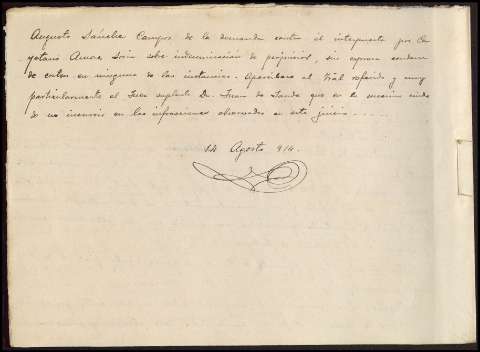 Augusto Sánchez Campos de la demanda contra él interpuesta por Ca
yetano Amora Soin sobre indemnización de perjuicios, sin expresa condena
de costas en ninguna de las instancias. Apercíbase al Tral referido y muy
particularmente al Juez suplente Dn. Juan de Landa que en lo sucesivo cuide
de no incurrir en las infracciones observadas en este juicio
14 Agosto 914.